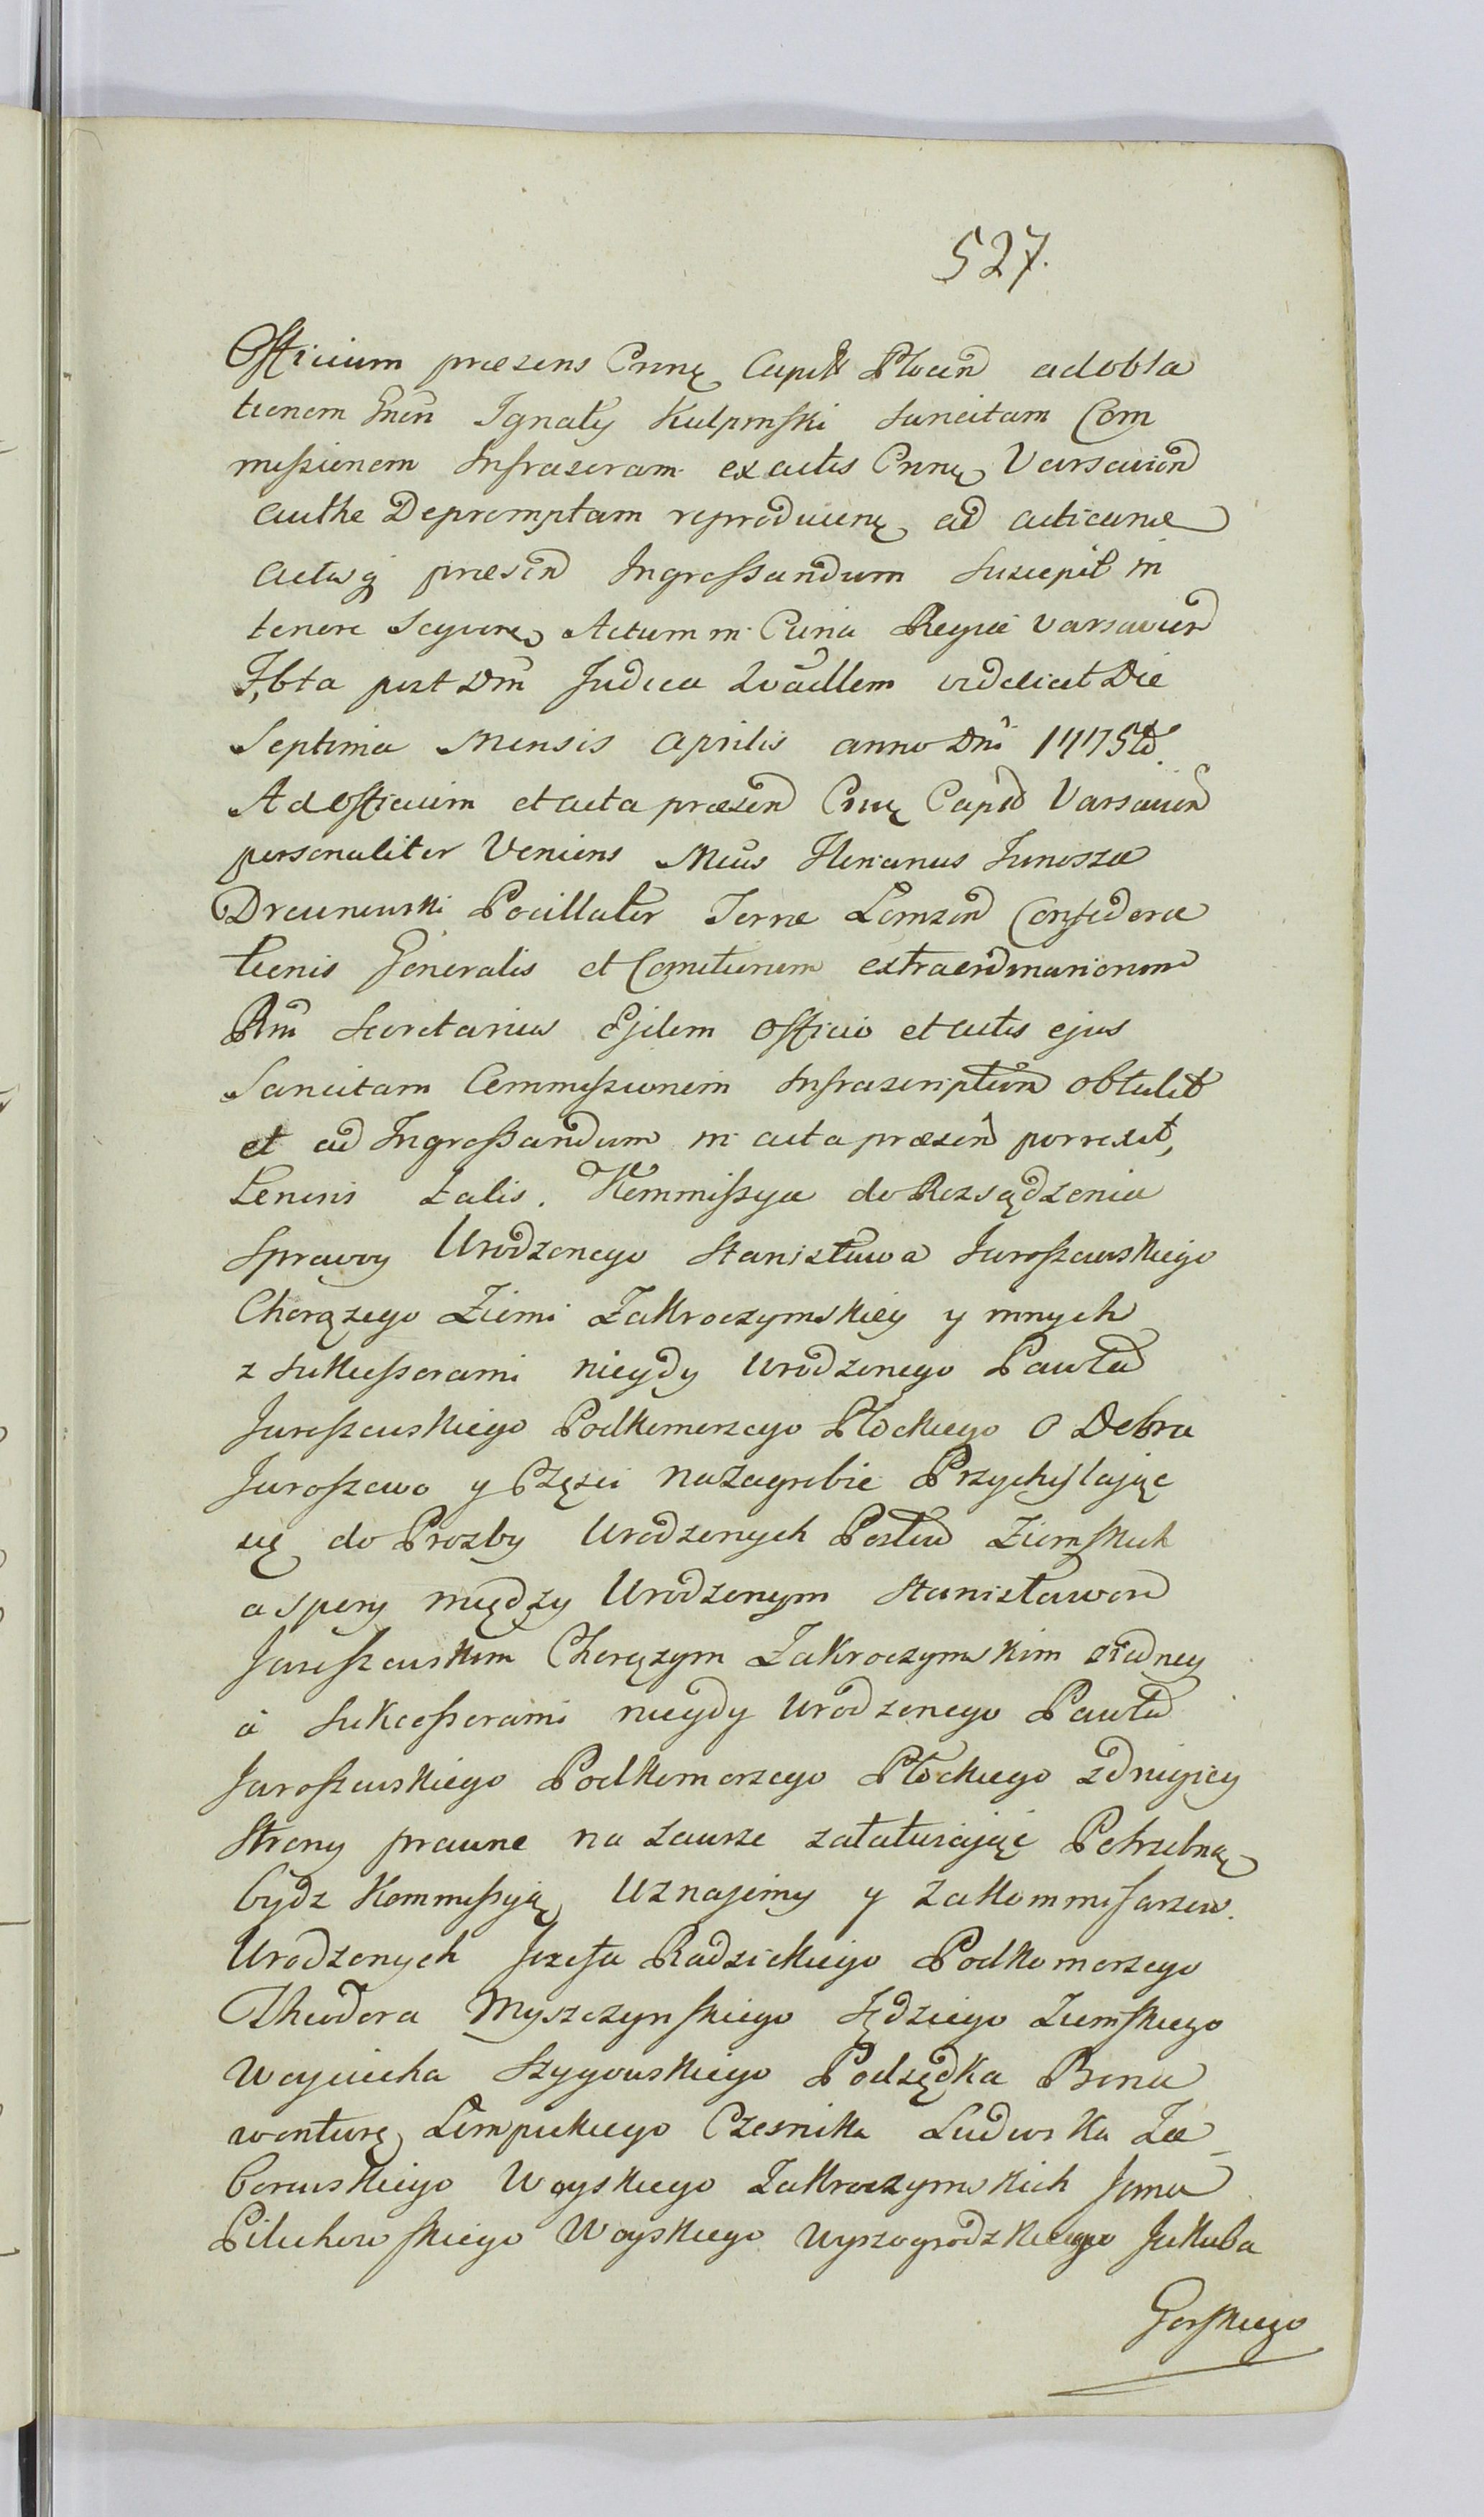 527.
Officium præsens Crnnę Capit Plocen̄ ad obla
tionem Gnen̄ Ignaty Kulpinski Sancitam Com
missionem Infrascram ex actis Crnnę Varsavien̄
authe Depromptam reproducenę ad acticane
actaq præsen̄ Ingrossandum Suscepit in
tenore Seqvore Actum in Curia Regia Varsavien̄
post Dm̄ Judica Qvadlem videlicet Die
Septima Mensis Aprilis anno Dni 1775to.
Ad Officium et acta præsen̄ Crnnę Capit Varsavien̄
personaliter Veniens Mcus Florianus Junosza
Drewnowski Pocillator Terræ Lomzen̄ Confœdera
tionis Generalis et Comitiorum extraordinariorum
Rni Secretarius Ejdem Officio et actis ejus
Sancitam Commissionem Infrascriptam obtulit
et ad Ingrossandum in acta præsen̄ porrexit,
tenoris talis. Kommissya do Rozsądzenia
Sprawy Urodzonego Stanisława Jaroszewskiego
Chorązego Ziemi Zakroczymskiey y innych
z Sukcessorami niegdy Urodzonego Pawła
Jaroszewskiego Podkomorzego Płockiego o Dobra
Jaroszewo y Części na Zagrobie Przychylaiąc
się do Prozby Urodzonych Posłow Ziemskich
a spory między Urodzonym Stanisławem
Jaroszewskim Chorązym Zakroczymskim z iedney
á Sukcessorami niegdy Urodzonego Pawła
Jaroszewskiego Podkomorzego Płockiego z drugiey
Strony prawne na zawsze załatwiając Potrzebną
bydz Kommissyią Uznajemy y za Kommisarzow.
Urodzonych Jozefa Radzickiego Podkomorzego
Theodora Myszczynskiego Sędziego Ziemskiego
Woyciecha Szygowskiego Podsędka Bona
wenturę Lempickiego Czesnika Ludwika Za-
borowskiego Woyskiego Zakroczymskich Jana
Pilichowskiego Woyskiego Wyszogrodzkiego Jakuba
Gorskiego